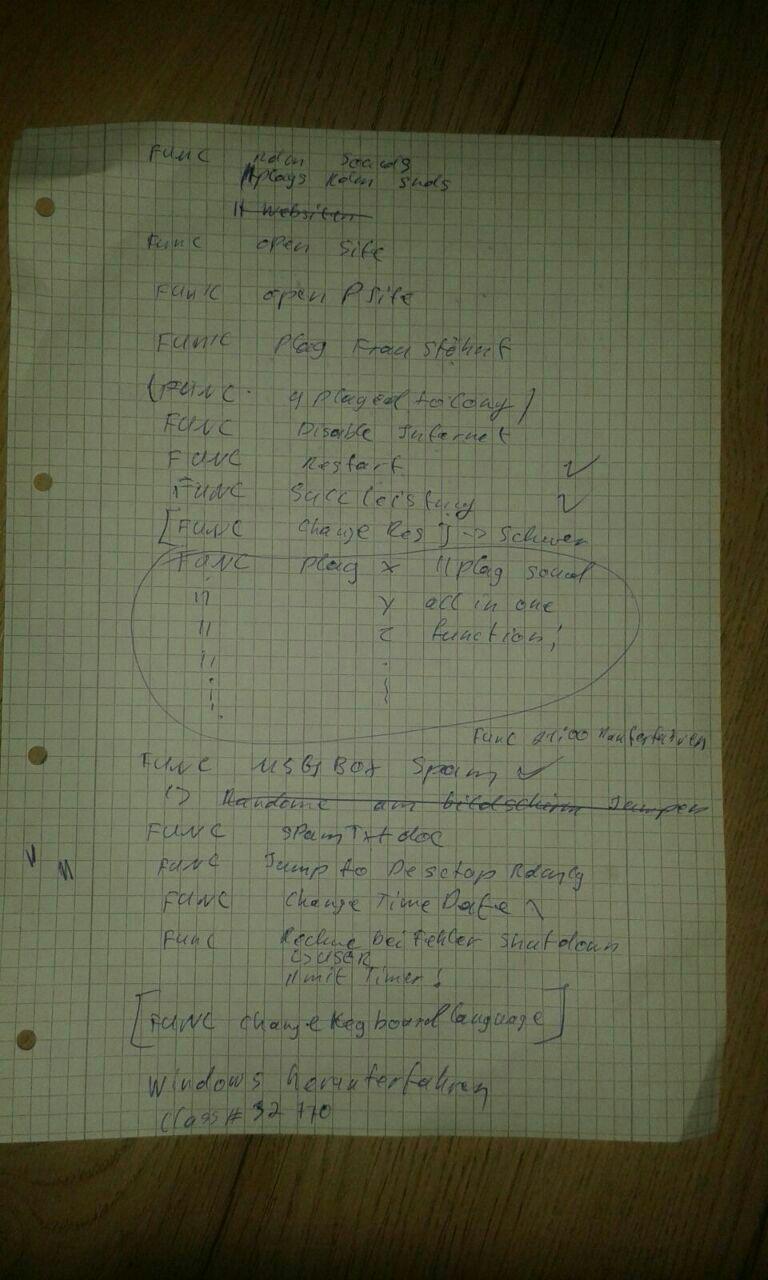 FUNC Rdm Sounds
//plays Rdm snds
// Websiten
Func open Site
FUNC open PSite
FUNC Play Frau Stöhnt
(FUNC. )
FUNC Disable Internet
FUNC Restart ✓
FUNC Succ leistung ✓
[FUNC Change Reg] -> Schwer
FUNC Play x //play sound
" y all in one
" z function!
"
Func 21:00 Runterfahren
FUNC MSGBOX Spam ✓
↳ Randome am bildschirm Jumpen
FUNC SPam Txt doc
FUNC Jump to Desctop Rdmly
FUNC Change Time Date
Func Rechne bei Fehler Shutdown
↳ USER
//mit Timer!
[FUNC Change Keyboard language]
Windows herunterfahren
Class # 32770